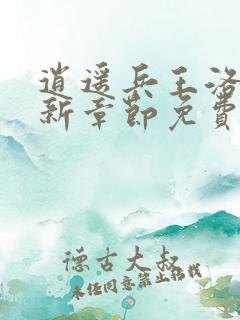 逍遥兵王洛
新章節免費
德古大叔
未经同意禁止转载